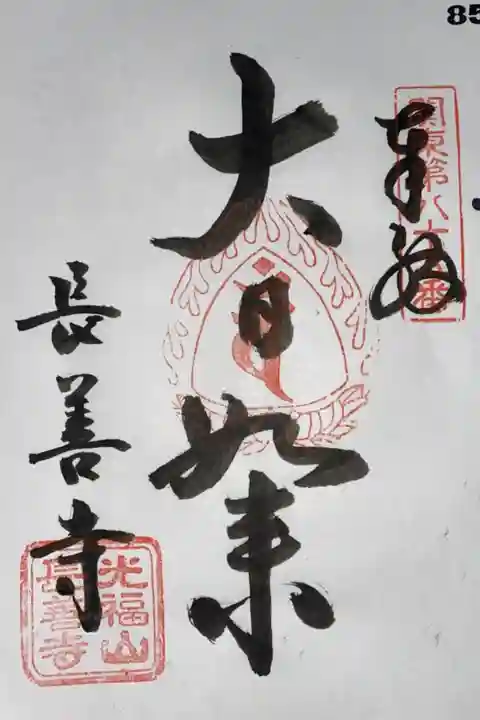 85
關東第八十 番
奉拝
大日如来
長善寺
光福山
長善寺